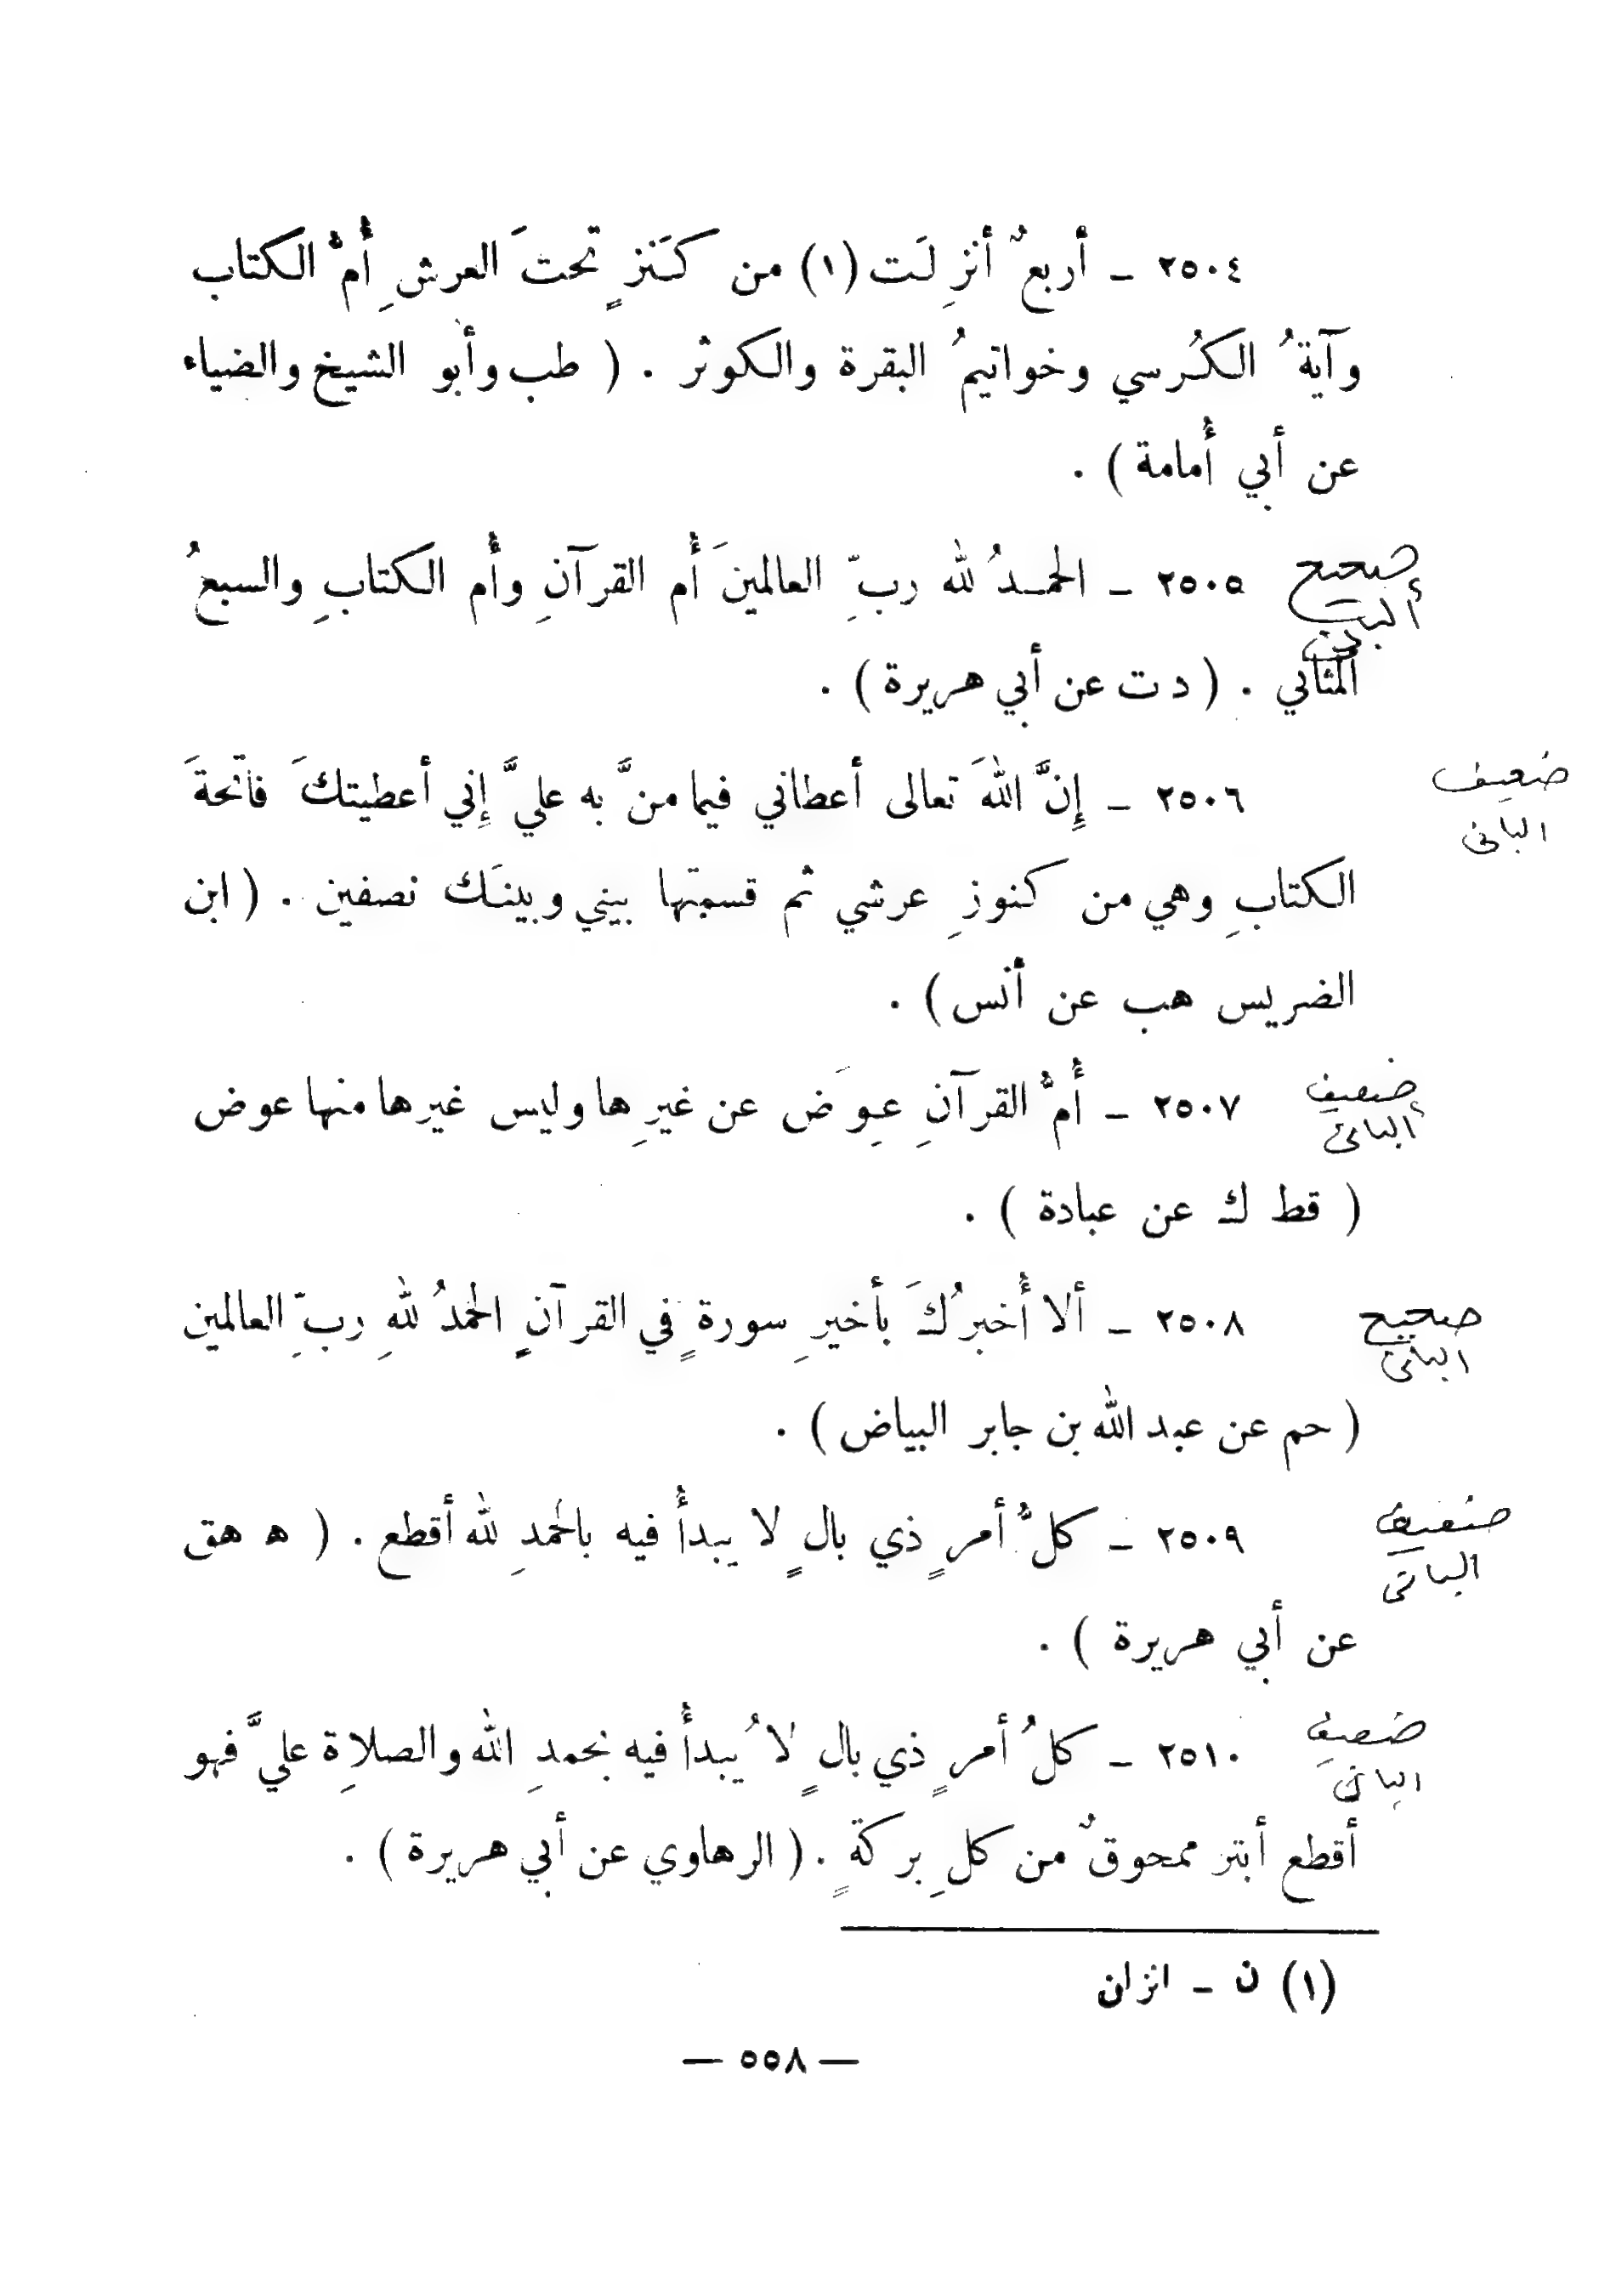 ٢٥٠٤ ـ أربعٌ أنزِلَت (١) من كَنزٍ تحتَ العرشِ أُمُّ الكتاب
وآيةُ الكُرسي وخواتيمُ البقرة والكوثر . ( طب وأبو الشيخ والضياء
عن أبي أُمامة ) .
صحيح ألباني
٢٥٠٥ ـ الحمـدُ لله ربِّ العالمينَ أُم القرآنِ وأُم الكتابِ والسبعُ
المثاني . ( د ت عن أبي هريرة ) .
ضعيف
البانى
٢٥٠٦ ـ إِنَّ اللهَ تعالى أعطاني فيما منَّ به عليَّ إِني أعطيتكَ فاتحةَ
الكتابِ وهي من كنوزِ عرشي ثم قسمتها بيني وبينَك نصفين . ( ابن
الضريس هب عن أنس ) .
ضعيف
ألبانى
٢٥٠٧ ـ أُمُّ القرآنِ عِوَض عن غيرِها وليس غيرها منها عوض
( قط ك عن عبادة ) .
صحيح
البانى
٢٥٠٨ ـ ألا أُخبرُكَ بأخيرِ سورةٍ في القرآنِ الحمدُ للهِ ربِّ العالمين
( حم عن عبد الله بن جابر البياض ) .
ضعيف
البانى
٢٥٠٩ ـ كلُّ أمرٍ ذي بالٍ لا يبدأُ فيه بالحمدِ لله أقطع . ( ه هق
عن أبي هريرة ) .
ضعيف
البانى
٢٥١٠ ـ كلُ أمرٍ ذي بالٍ لا يُبدأُ فيه بحمدِ الله والصلاةِ عليَّ فهو
أقطع أبتر ممحوقٌ من كلِ بركةٍ . ( الرهاوي عن أبي هريرة ) .
(١) ن ـ انزلن
— ٥٥٨ —